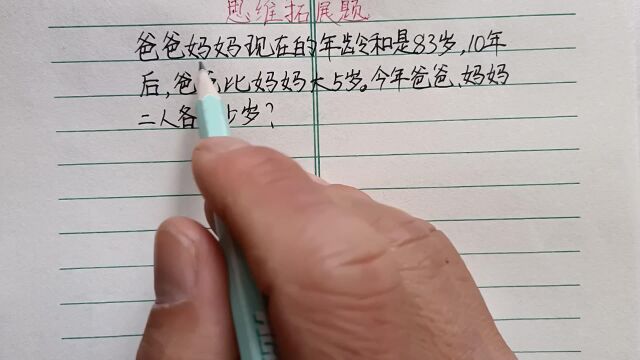 思维拓展题
爸爸妈妈现在的年龄和是83岁,10年
后,爸 比妈妈大5岁。今年爸爸、妈妈
二人各 岁?